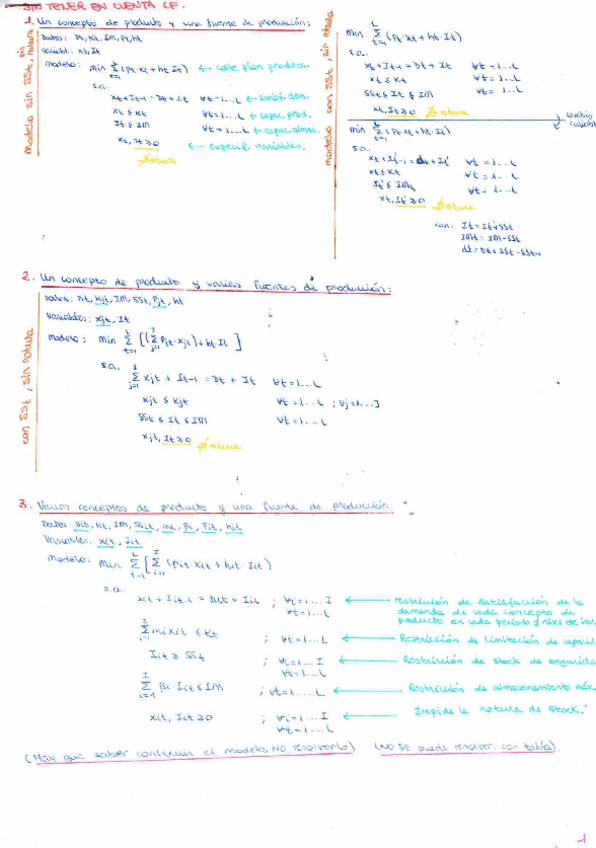 SIN TENER EN CUENTA CF.
1. Un concepto de producto y una fuente de producción:
Modelo sin SSt, sin rotura
Datos: Dt, Kt, IM, Pt, ht
Variabl.: xt, It
modelo: min Σ (Pt·xt + ht It) ← coste plan producc.
t=1
s.a.
xt + It-1 = Dt + It ∀t=1...L ← satisf. dem.
xt ≤ Kt ∀t=1...L ← capac. prod.
It ≤ IM ∀t=1...L ← capac. almac.
xt, It ≥ 0 ← especif. variables.
∄rotura
modelo con SSt, sin rotura
min Σ (Pt·xt + ht·It)
t=1
s.a.
xt + It-1 = Dt + It ∀t=1...L
xt ≤ Kt ∀t=1...L
SSt ≤ It ≤ IM ∀t=1...L
xt, It ≥ 0 ∄rotura
cambio variable
min Σ (Pt·xt + ht·It')
s.a.
xt + It'-1 = dt + It' ∀t=1...L
xt ≤ Kt ∀t=1...L
It' ≤ IMt ∀t=1...L
xt, It' ≥ 0 ∄rotura
con: It = It' + SSt
IMt = IM - SSt
dt = Dt + SSt - SSt-1
2. Un concepto de producto y varias fuentes de producción:
con SSt, sin rotura
Datos: Dt, Kjt, IM, SSt, Pjt, ht
Variables: xjt, It
modelo: min Σ [(Σ Pjt·xjt) + ht·It]
t=1 j=1
s.a.
Σ xjt + It-1 = Dt + It ∀t=1...L
j=1
xjt ≤ Kjt ∀t=1...L ; ∀j=1...J
SSt ≤ It ≤ IM ∀t=1...L
xjt, It ≥ 0 ∄rotura
3. Varios conceptos de producto y una fuente de producción.
Datos: Dit, Kt, IM, SSit, mi, βi, Pit, hit
Variables: xit, Iit
modelo: min Σ [Σ (Pit·xit + hit·Iit)
t=1 i=1
s.a.
xit + Iit-1 = Dit + Iit ; ∀i=1...I ← Restricción de satisfacción de la
∀t=1...L demanda de cada concepto de
producto en cada periodo y nivel de inv.
Σ mi xit ≤ Kt ; ∀t=1...L ← Restricción de limitación de capacid
Iit ≥ SSt ; ∀i=1...I ← Restricción de stock de segurida
∀t=1...L
Σ βi Iit ≤ IM ; ∀t=1...L ← Restricción de almacenamiento máx.
i=1
xit, Iit ≥ 0 ; ∀i=1...I ← Impide la rotura de stock.
∀t=1...L
(Hay que saber construir el modelo, NO resolverlo) (No se puede resolver con tabla).
1